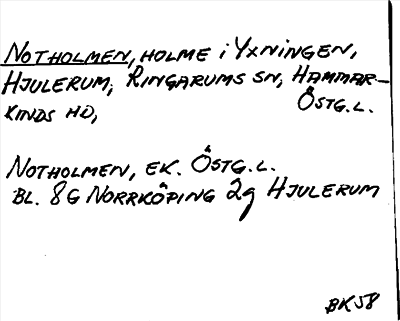 NOTHOLMEN, HOLME i YXNINGEN,
HJULERUM, RINGARUMS SN, HAMMAR-
KINDS HD, ÖSTG.L.
NOTHOLMEN, EK. ÖSTG.L.
BL. 8G NORRKÖPING 2g HJULERUM
BK58